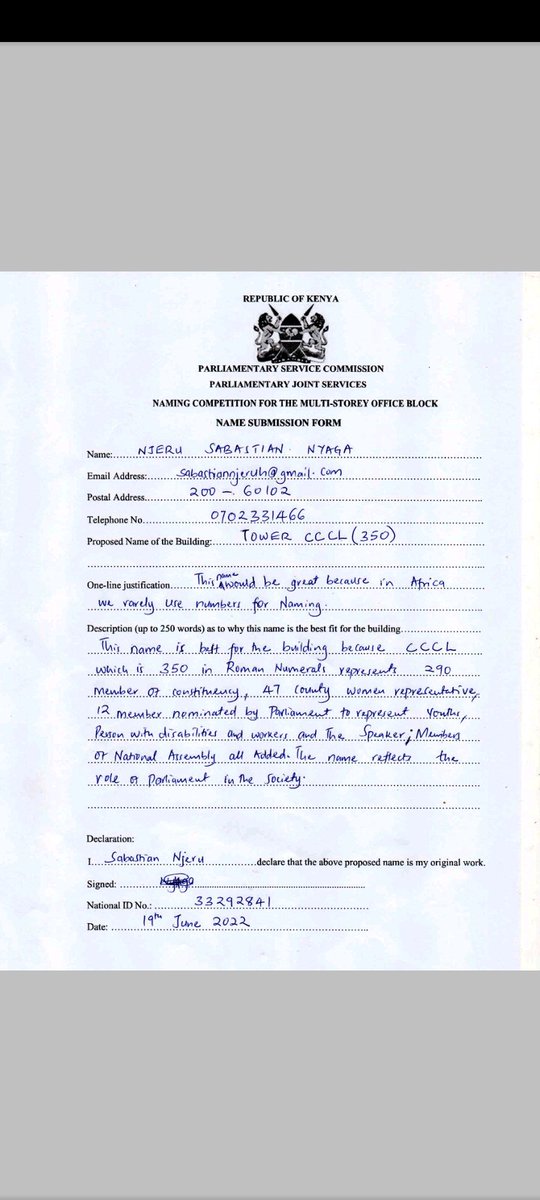 REPUBLIC OF KENYA
PARLIAMENTARY SERVICE COMMISSION
PARLIAMENTARY JOINT SERVICES
NAMING COMPETITION FOR THE MULTI-STOREY OFFICE BLOCK
NAME SUBMISSION FORM
Name: NJERU SABASTIAN. NYAGA
Email Address: sabastiannjeruh@gmail.com
Postal Address 200 - 60102
Telephone No. 0702331466
Proposed Name of the Building: TOWER CCCL (350)
One-line justification This name would be great because in Africa
we rarely use numbers for Naming.
Description (up to 250 words) as to why this name is the best fit for the building
This name is best for the building because CCCL
which is 350 in Roman Numerals represents 290
Member of constituency, 47 County women representative,
12 member nominated by Parliament to represent Youths,
Person with disabilities and workers and The Speaker; Members
of National Assembly all Added. The name reflects the
role of Parliament in the society.
Declaration:
I Sabastian Njeru declare that the above proposed name is my original work.
Signed:
National ID No.: 33292841
Date: 19th June 2022